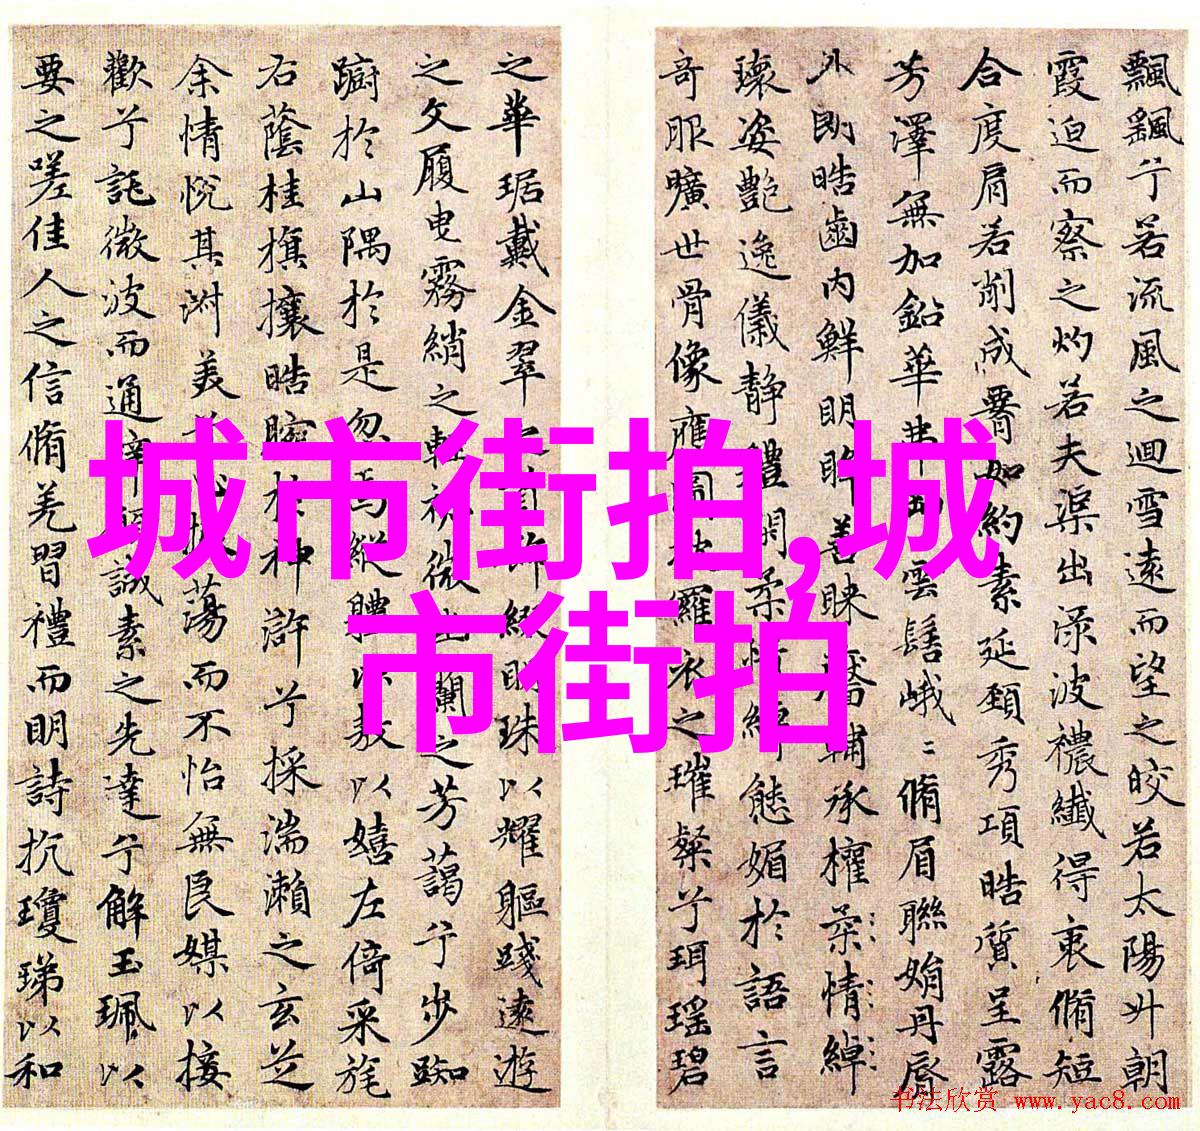 飄飖兮若流風之迴雪遠而望之皎若太陽升朝
霞迫而察之灼若夫渠出淥波襛纖得衷脩短
合度肩若削成腰如約素延頸秀項皓質呈露
芳澤無加鉛華弗雲髻峨〻脩眉聯娟丹唇
外朗皓齒內鮮明眸善睞靨輔承權柔情綽
瓌姿艷逸儀靜體閑柔綽態媚於語言
奇服曠世骨像應圖披羅衣之璀粲兮珥瑤碧
之華琚戴金翠之首飾綴明珠以耀軀踐遠遊
之文履曳霧綃之輕裾微幽蘭之芳藹兮步踟
躕於山隅於是忽焉縱體以敖以嬉左倚采旄
右蔭桂旗攘皓腕於神滸兮採湍瀨之玄芝
余情悅其淑美兮心振蕩而不怡無良媒以接
歡兮託微波而通辭誠素之先達兮解玉珮以
要之嗟佳人之信脩羌習禮而明詩抗瓊珶以和
城市街拍,城
市街拍
书法欣赏 www.yac8.com